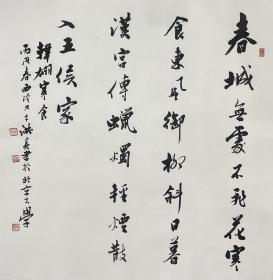 春城無處不飛花寒
食東风御柳斜日暮
漢宮傳蠟燭輕煙散
入五侯家
韓翃寒食
丙戌春西泠 書於北京大學